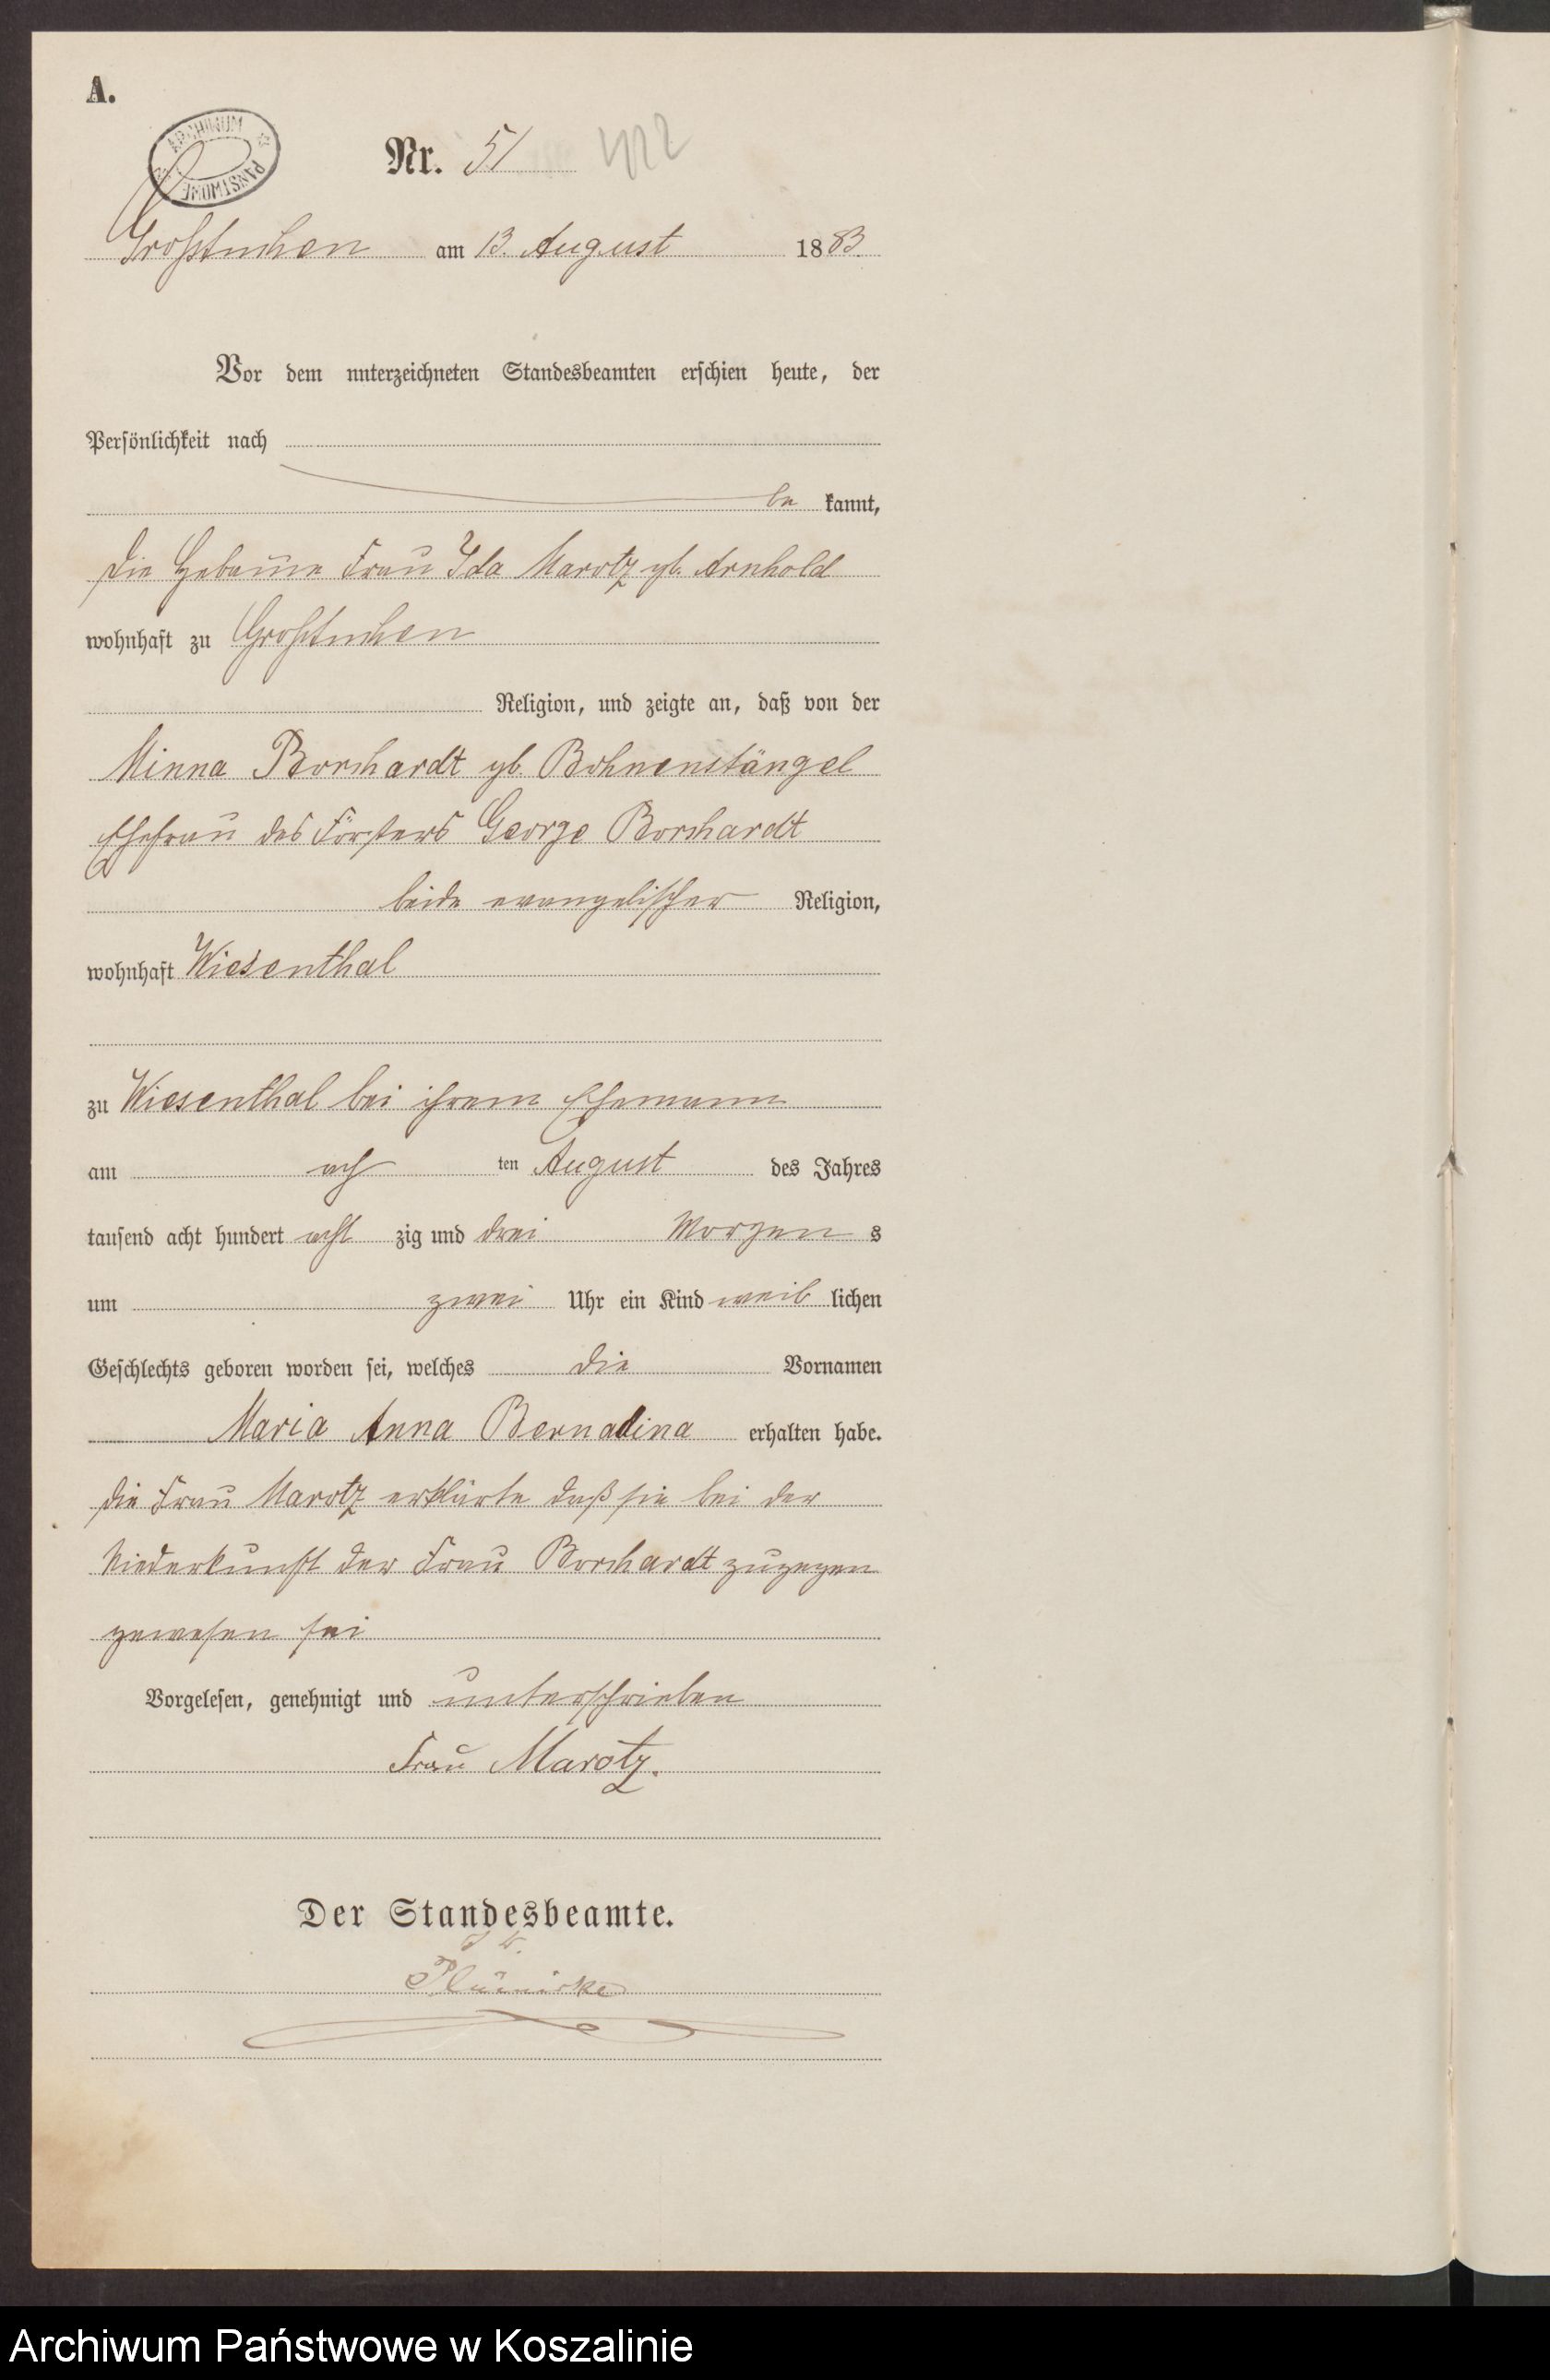 A.
ARCHIWUM PAŃSTWOWE
Nr. 51 422
Großtuchen am 13. August 1883
Vor dem unterzeichneten Standesbeamten erschien heute, der
Persönlichkeit nach
be kannt,
die Hebamme Frau Ida Marotz gb. Arnhold
wohnhaft zu Großtuchen
Religion, und zeigte an, daß von der
Minna Borchardt gb. Bohnenstängel
Ehefrau des Försters George Borchardt
beide evangelischer Religion,
wohnhaft Wiesenthal
zu Wiesenthal bei ihrem Ehemann
am ach ten August des Jahres
tausend acht hundert acht zig und drei Morgen s
um zwei Uhr ein Kind weib lichen
Geschlechts geboren worden sei, welches die Vornamen
Maria Anna Bernadina erhalten habe.
die Frau Marotz erklärte daß sie bei der
Niederkunft der Frau Borchardt zugegen
gewesen sei
Vorgelesen, genehmigt und unterschrieben
Frau Marotz.
Der Standesbeamte.
Archiwum Państwowe w Koszalinie